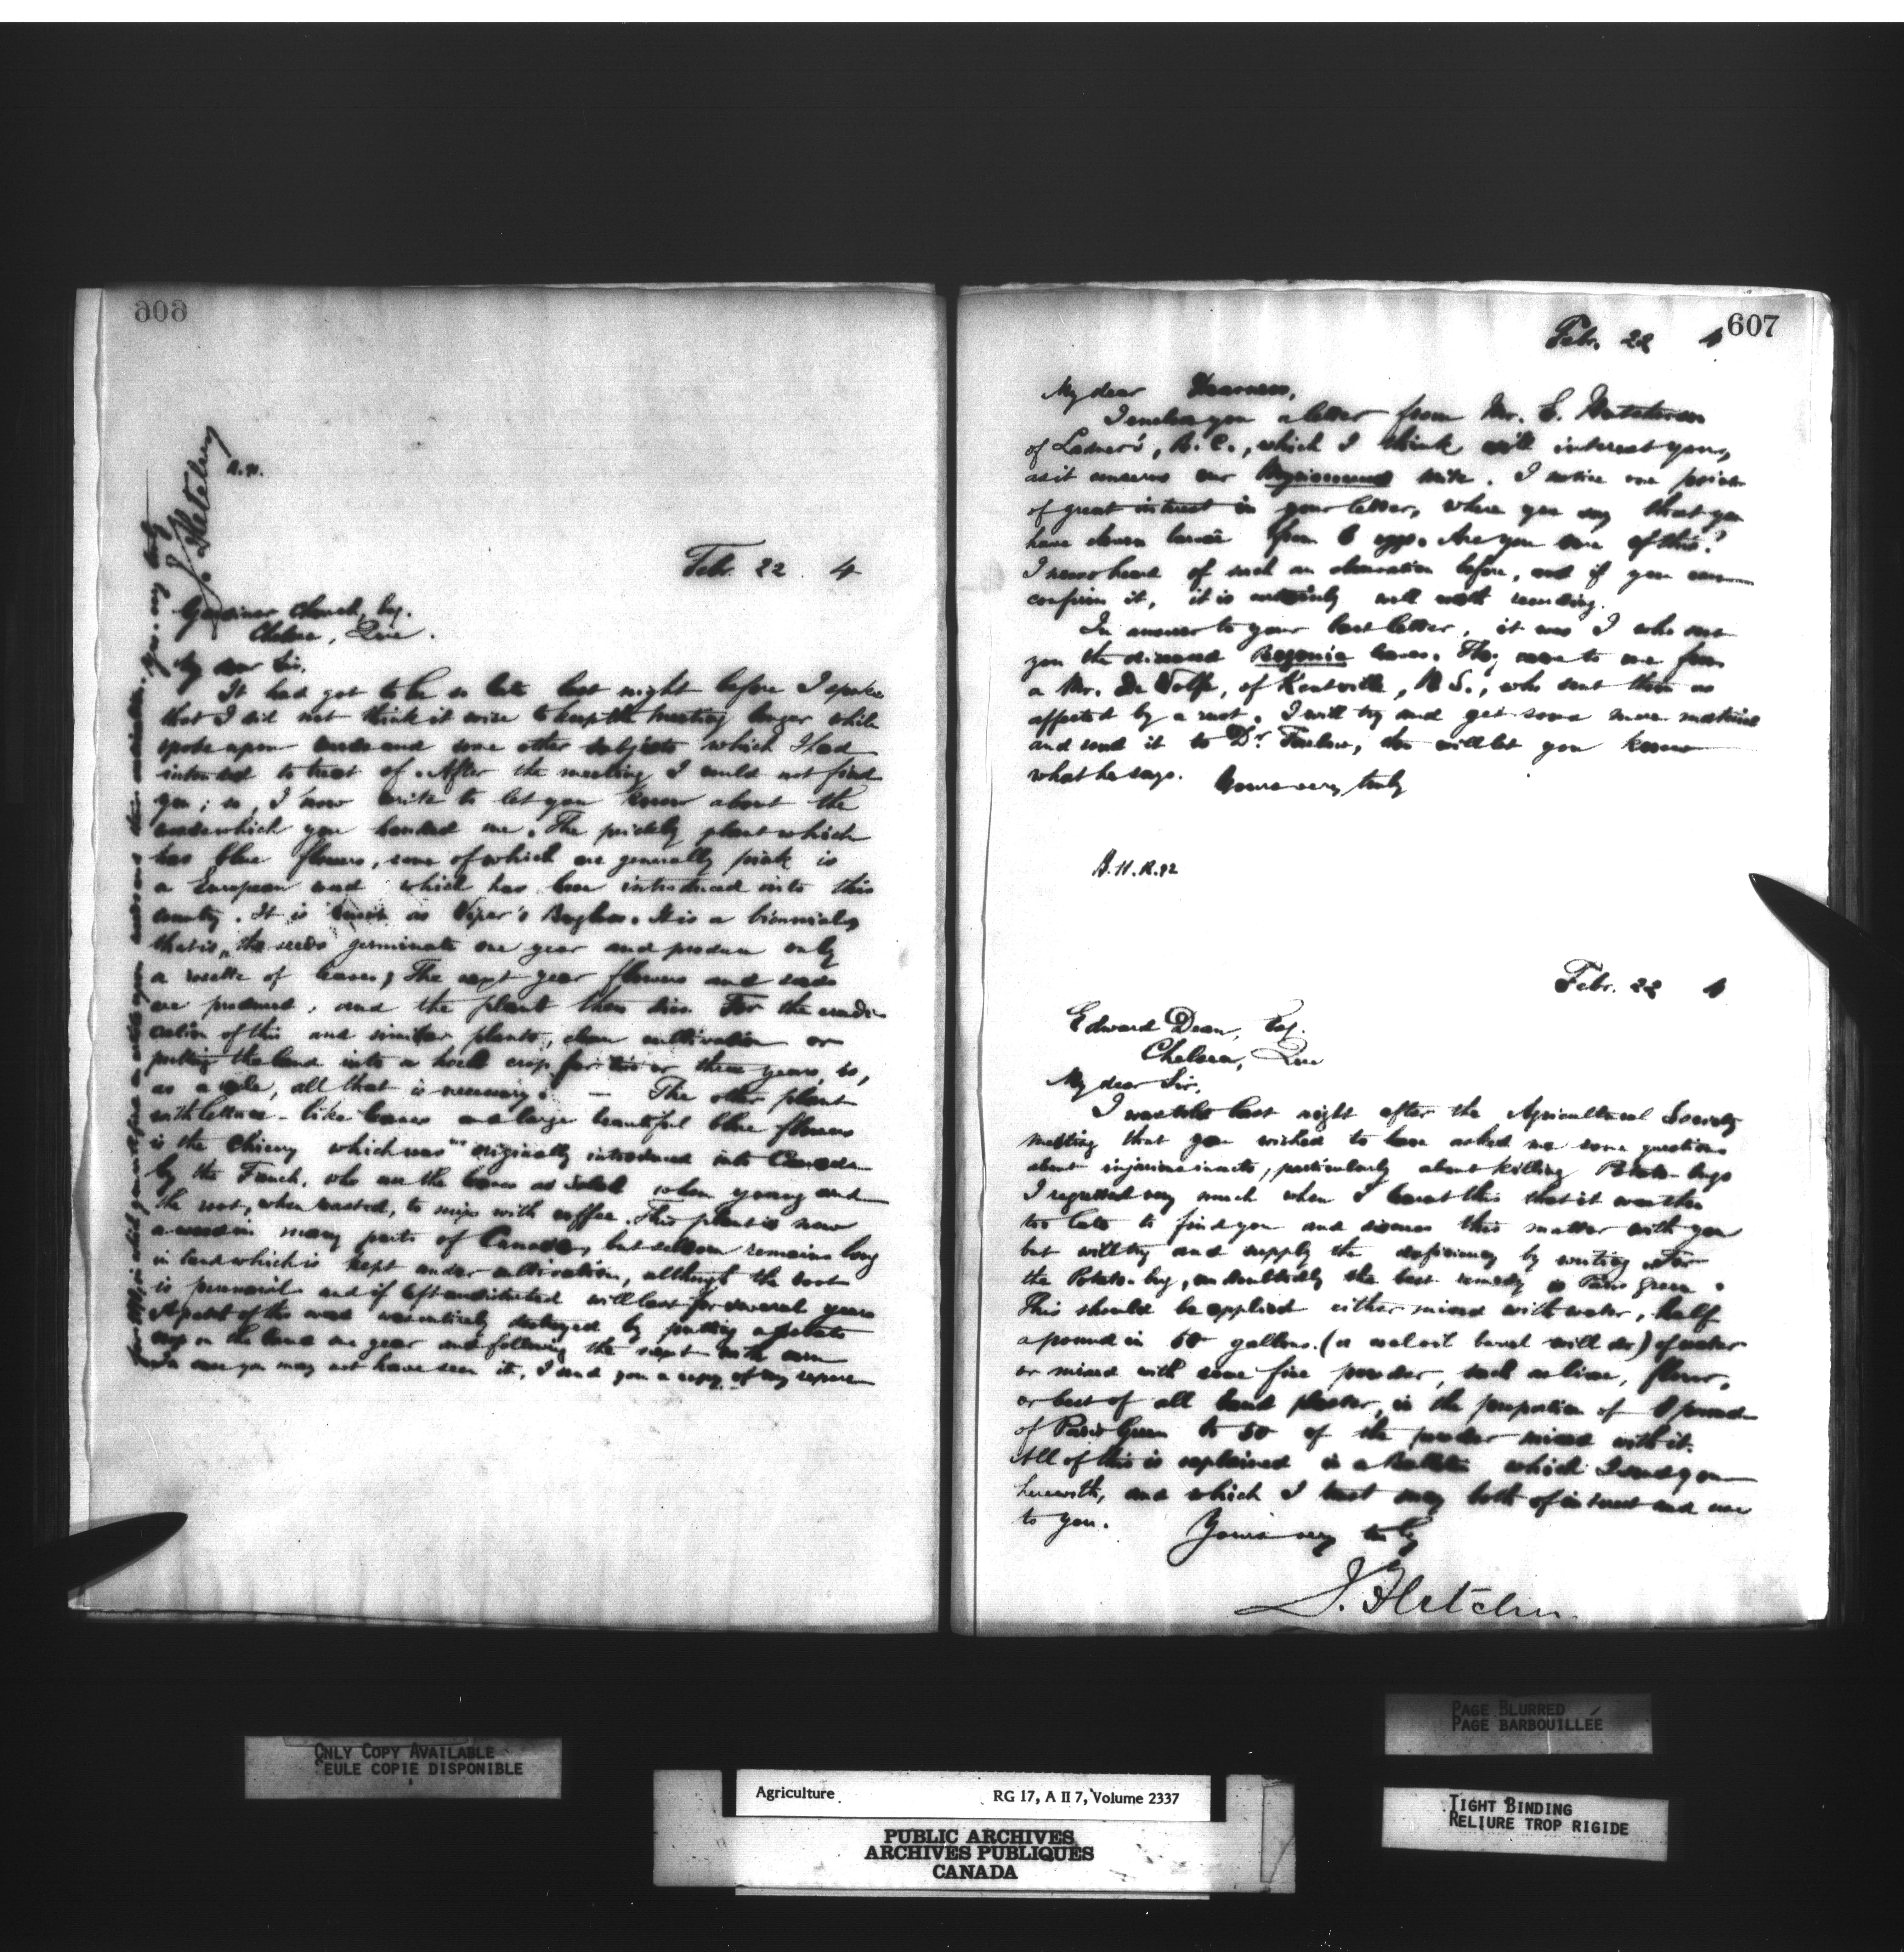 606
J. Fletcher
R.H.
Febr. 22 4
Gardiner Church, Esq.
Chelsea, Que.
My dear Sir,
It had got to be so late last night before I spoke
that I did not think it wise to keep the meeting longer while
spoke upon weeds and some other subjects which I had
intended to treat of. After the meeting I could not find
you; so, I now write to let you know about the
weeds which you handed me. The prickly plant which
has blue flowers, some of which are generally pink is
a European weed which has been introduced into this
country. It is known as Viper's Bugloss. It is a biennial,
that is, the seeds germinate one year and produce only
a rosette of leaves; The next year flowers and seeds
are produced, and the plant then dies. For the eradi-
cation of this and similar plants, clean cultivation or
putting the land into a hoed crop for two or three years, is,
as a rule, all that is necessary. — The other plant
with lettuce-like leaves and large beautiful blue flowers
is the Chicory which was originally introduced into Canada
by the French, who use the leaves as Salad when young and
the root, when roasted, to mix with coffee. This plant is now
a weed in many parts of Canada, but seldom remains long
in land which is kept under cultivation, although the root
is perennial and if left undisturbed will last for several years
A patch of this weed was entirely destroyed by putting a potato
crop on the land one year and following the next with corn
In case you may not have seen it, I send you a copy of my report
for 1891, in which you will find
Yours very truly
607
Febr. 22 4
My dear Dearness,
I enclose you a letter from Mr. E. Hutcherson
of Ladner's, B.C., which I think will interest you,
as it concerns our mite. I notice one point
of great interest in your letter, where you say that you
have drawn larvae from eggs. Are you sure of this?
I never heard of such an observation before, and if you can
confirm it, it is certainly well worth recording.
In answer to your last letter, it was I who sent
you the diseased Begonia leaves. They came to me from
a Mr. De Wolfe, of Kentville, N.S., who sent them as
affected by a rust. I will try and get some more material
and send it to Dr. Farlow, & will let you know
what he says. Yours very truly
B.H.R.92
Febr. 22 4
Edward Dean, Esq.
Chelsea, Que
My dear Sir,
I was told last night after the Agricultural Society
meeting that you wished to have asked me some questions
about injurious insects, particularly about killing Potato-bugs
I regretted very much when I learnt this that it was then
too late to find you and discuss this matter with you
but will try and supply the deficiency by writing. For
the Potato-bug, undoubtedly the best remedy is Paris green.
This should be applied either mixed with water, half
a pound in 50 gallons (a coal oil barrel will do) of water
or mixed with some fine powder, such as lime, flour,
or best of all land plaster, in the proportion of 1 pound
of Paris Green to 50 of the powder mixed with it.
All of this is explained in a Bulletin which I send you
herewith, and which I trust may both of interest and use
to you. Yours very truly
J. Fletcher
ONLY COPY AVAILABLE
SEULE COPIE DISPONIBLE
PAGE BLURRED
PAGE BARBOUILLÉE
TIGHT BINDING
RELIURE TROP RIGIDE
Agriculture RG 17, A II 7, Volume 2337
PUBLIC ARCHIVES
ARCHIVES PUBLIQUES
CANADA